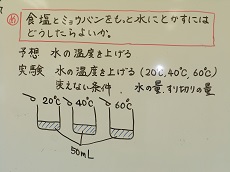 め 食塩とミョウバンをもっと水にとかすには
どうしたらよいか。
予想 水の温度を上げる
実験 水の温度を上げる(20℃,40℃,60℃)
変えない条件…水の量、すり切りの量
20℃ 40℃ 60℃
50mL